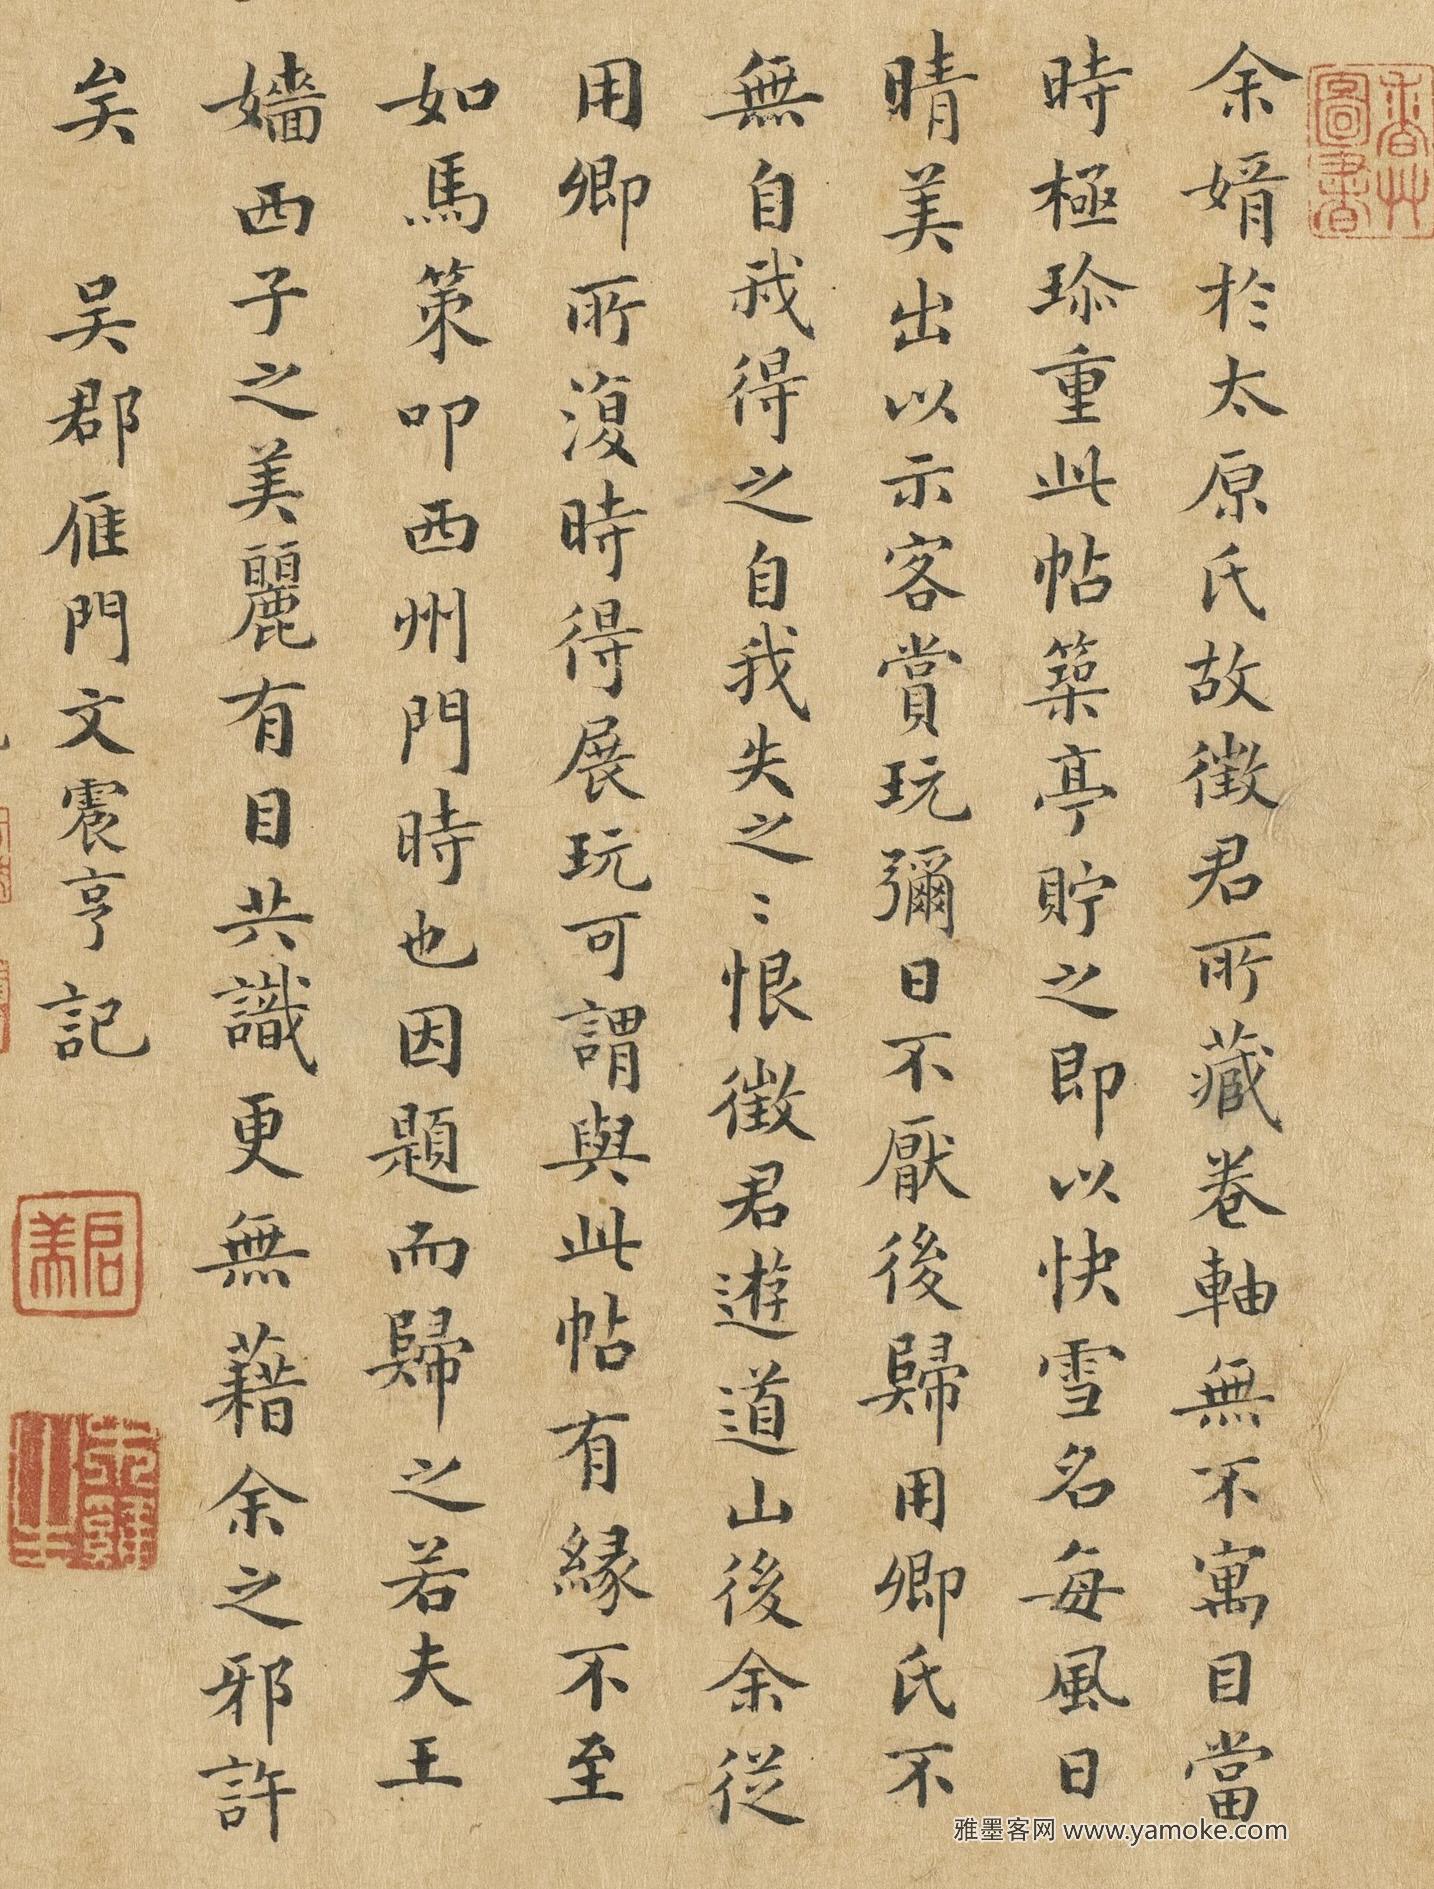 余婿於太原氏故徵君所藏卷軸無不寓目當
時極珎重此帖築亭貯之即以快雪名每風日
晴美出以示客賞玩彌日不厭後歸用卿氏不
無自我得之自我失之〻恨徵君遊道山後余從
用卿所澓時得展玩可謂與此帖有緣不至
如馬策叩西州門時也因題而歸之若夫王
嬙西子之美麗有目共識更無藉余之邪許
矣 吴郡雁門文震亨記
香草圖書
啟美
雅墨客网 www.yamoke.com